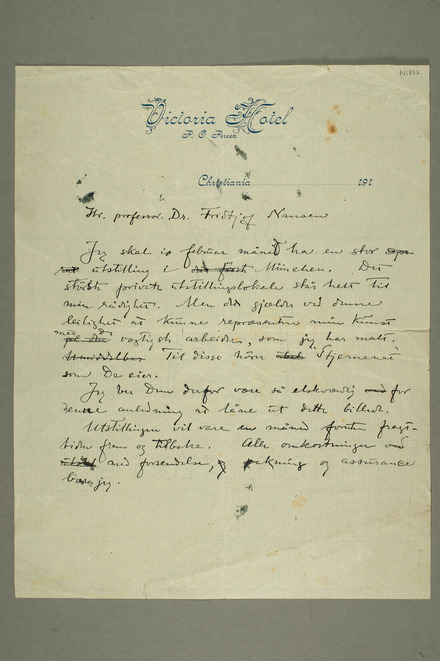 N1897
Victoria Hotel
P. O. Persen
Christiania 191
Hr. professor. Dr. Fridtjof Nansen
Jeg skal i februar måned ha en stor sepa-
rat utstilling i München. Det
største private utstillingslokale står helt til
min rådighet. Men det gjælder ved denne
leilighet at kunne repræsentere min kunst
med de vægtigste arbeider, som jeg har malt.
Til disse hører "Stjernenat"
som De eier.
Jeg ber Dem derfor være så elskværdig for
denne anledning at låne ut dette billede.
Utstillingen vil vare en måned foruten fragt-
tiden frem og tilbake. Alle omkostninger ved
med forsendelse, pakning og assurance
bærer jeg.